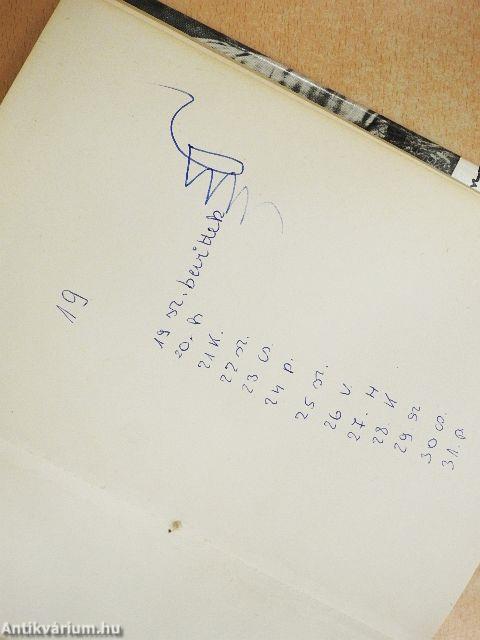 19
19 sz. bevittek
20. h
21 K.
22 sz.
23 cs.
24 p.
25 sz.
26 v.
27. H
28. K
29 sz
30 cs.
31. p.
Antikvárium.hu